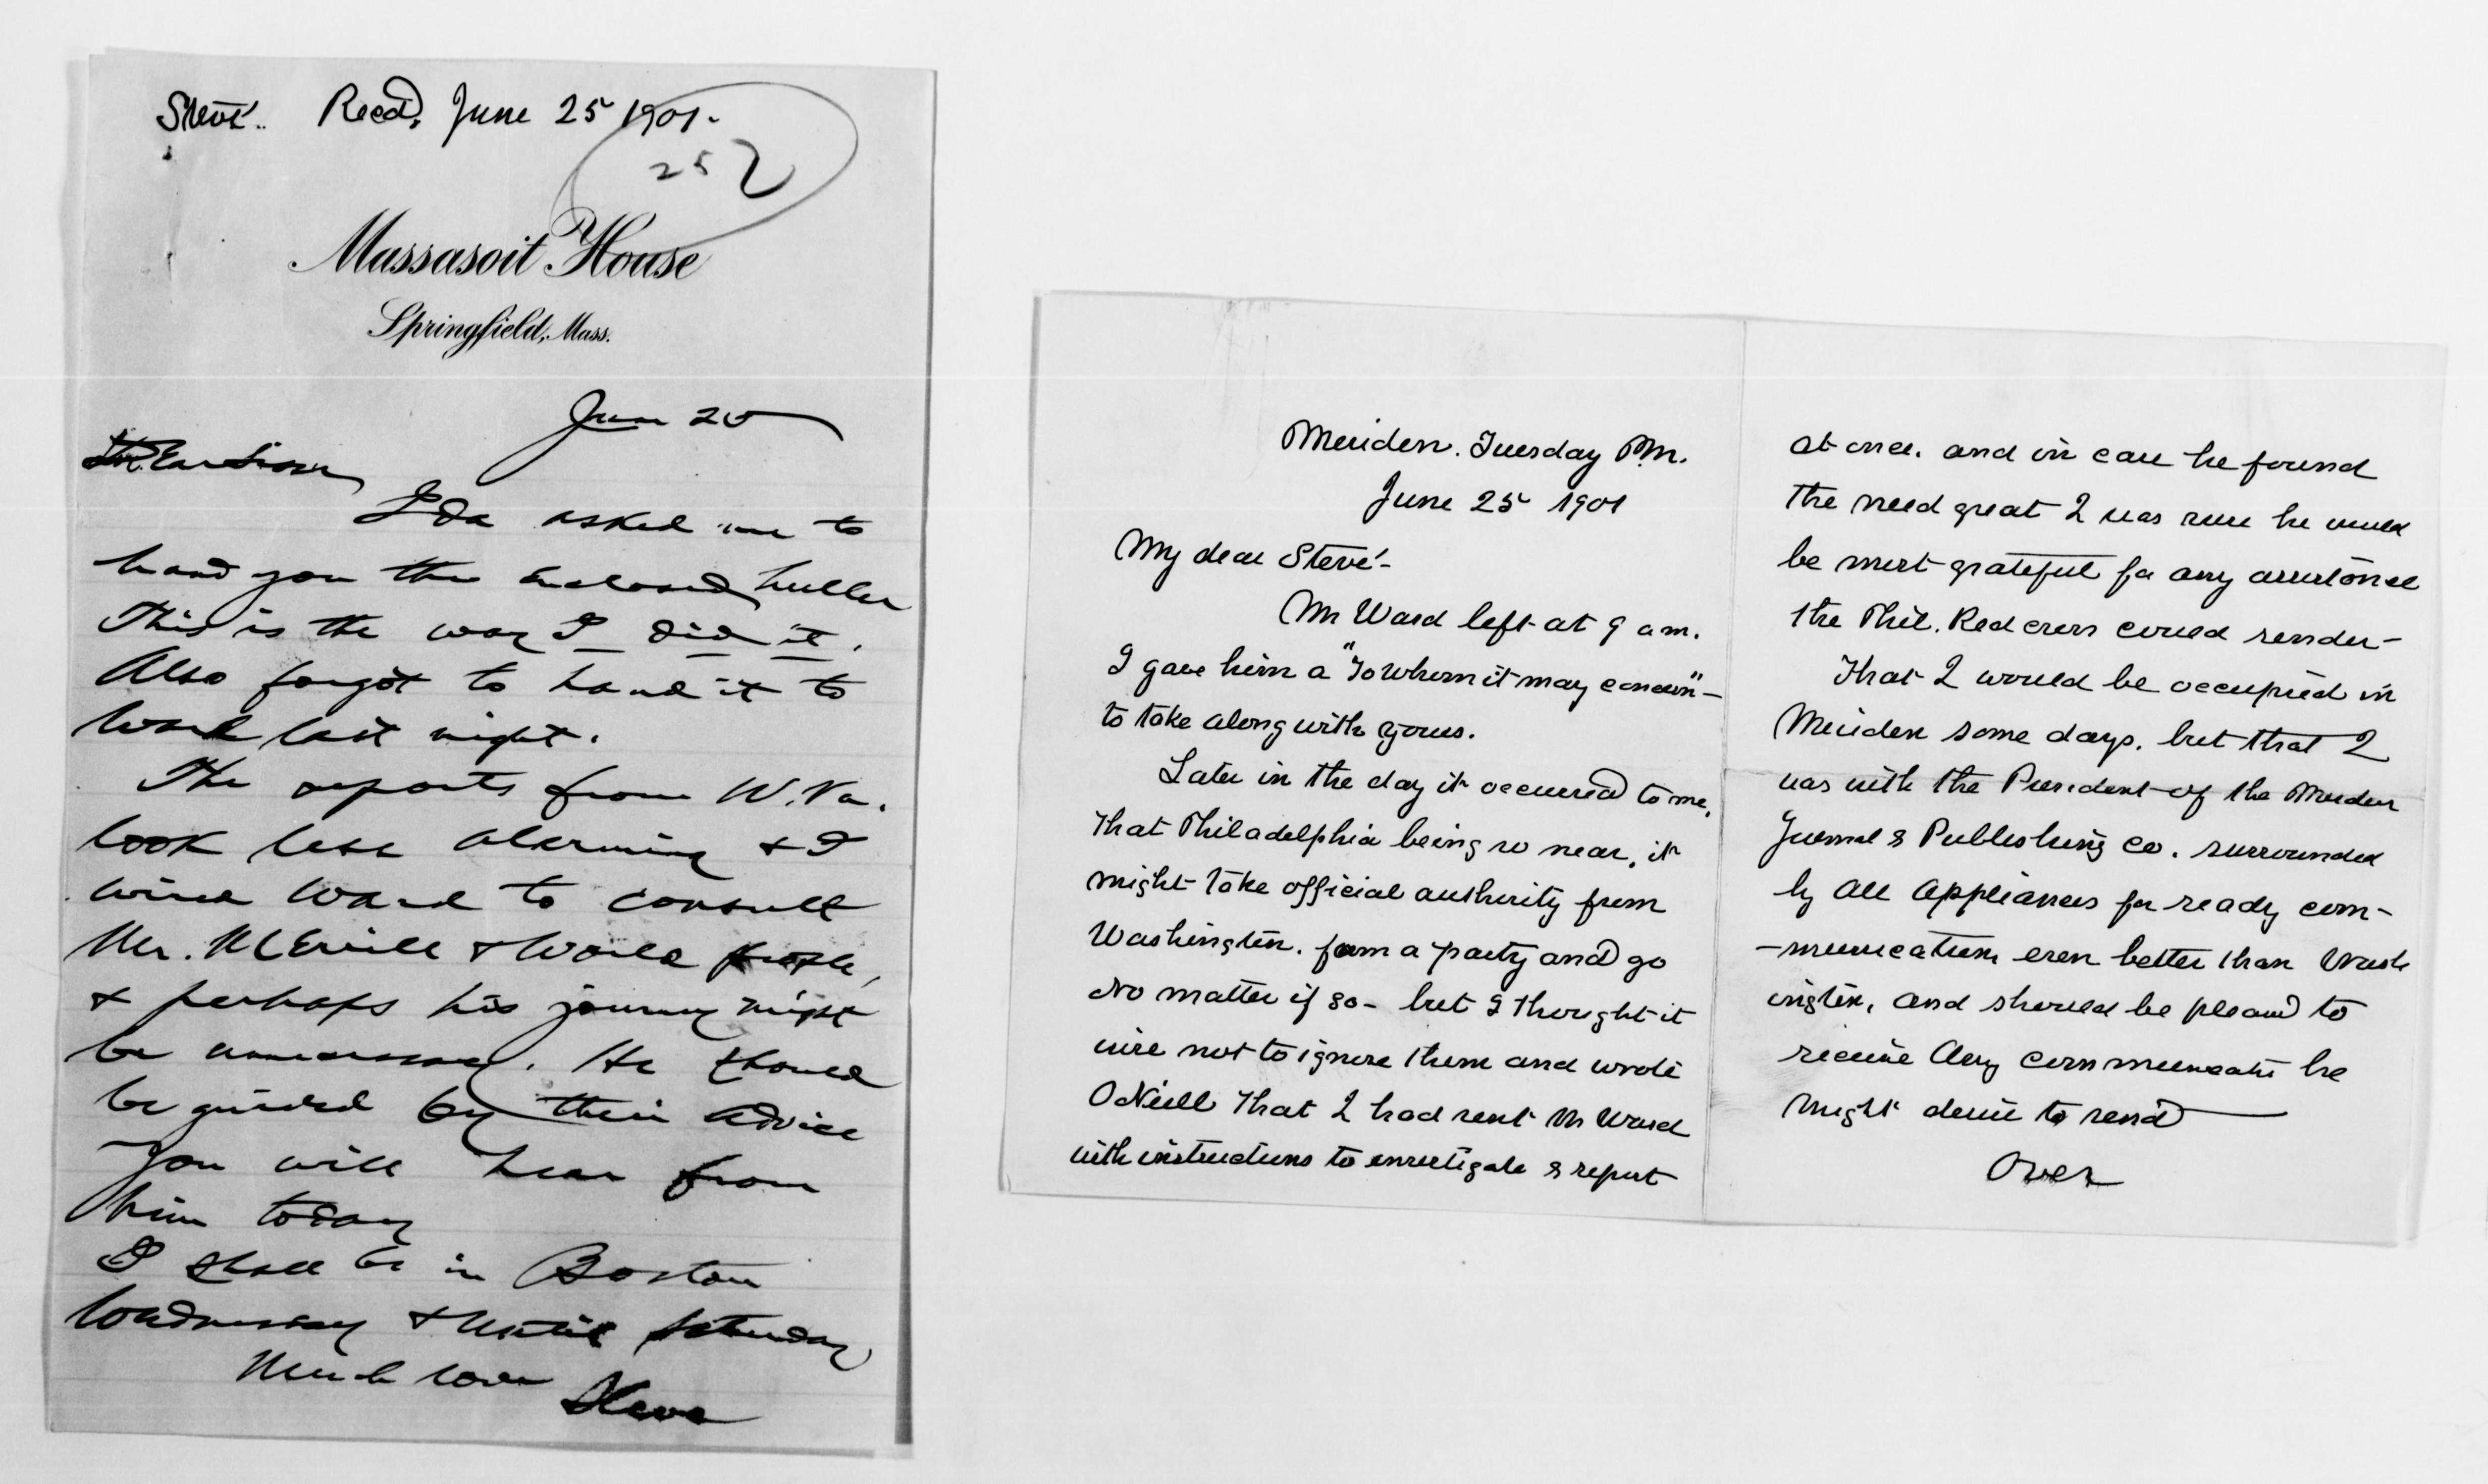 Steve. Recd. June 25 1901.
252
Massasoit House
Springfield, Mass.
June 25
Ida asked me to
hand you the enclosed
This is the way I did it.
Also forgot to hand it to
Ward last night.
The reports from W. Va.
look less alarming & I
wired Ward to consult
Mr. & World people,
& perhaps his journey might
be unnecessary. He should
be guided by their advice
You will hear from
him today
I shall be in Boston
Wednesday & until Saturday
Much love Steve
Meriden. Tuesday P.M.
June 25 1901
My dear Steve-
Mr Ward left at 9 a m.
I gave him a "To whom it may concern" -
to take along with yours.
Later in the day it occurred to me,
that Philadelphia being so near, it
might take official authority from
Washington. form a party and go
No matter if so - but I thought it
wise not to ignore them and wrote
ONeill that I had sent Mr Ward
with instructions to investigate & report
at once. and in case he found
the need great I was sure he would
be most grateful for any assistance
the Phil. Red cross could render -
That I would be occupied in
Meriden some days. but that I
was with the President of the Meriden
Journal & Publishing co. surrounded
by all appliances for ready com-
-munication even better than Wash
ington, and should be pleased to
receive any communicatn he
might desire to send
Over